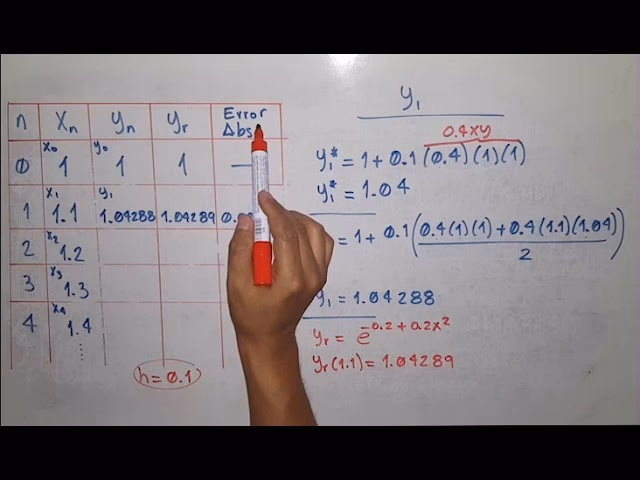 n Xn Yn Yr Error Abs
0 x0 1 y0 1 1 —
1 x1 1.1 y1 1.04288 1.04289
2 x2 1.2
3 x3 1.3
4 x4 1.4
⋮
h = 0.1
y1
0.4xy
y1* = 1 + 0.1 (0.4)(1)(1)
y1* = 1.04
= 1 + 0.1 (0.4(1)(1) + 0.4(1.1)(1.04) / 2)
y1 = 1.04288
yr = e^(-0.2 + 0.2x²)
yr(1.1) = 1.04289